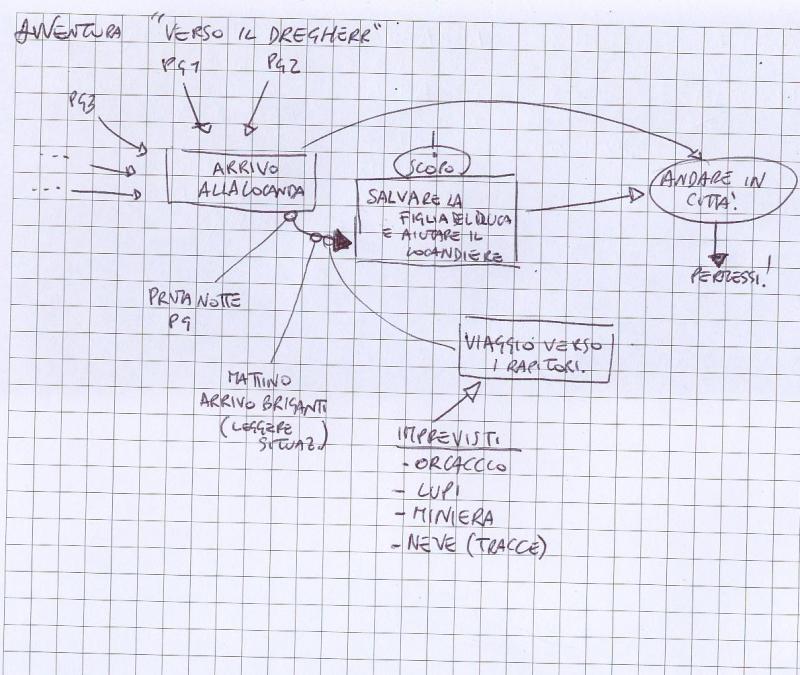 AVVENTURA "VERSO IL DREGHERR"
PG1
PG2
PG3
ARRIVO
ALLA LOCANDA
SCOPO
SALVARE LA
FIGLIA DEL DUCA
E AIUTARE IL
LOCANDIERE
ANDARE IN
CITTÀ!
PERMESSI!
PRIMA NOTTE
PG
VIAGGIO VERSO
I RAPITORI.
MATTINO
ARRIVO BRIGANTI
(LEGGERE
SITUAZ.)
IMPREVISTI
- ORCACCIO
- LUPI
- MINIERA
- NEVE (TRACCE)